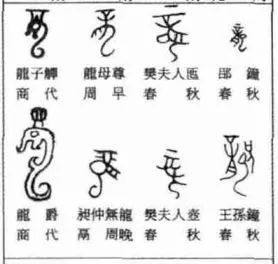 龍子觶 龍母尊 樊夫人匜 郘鐘
商代 周早 春秋 春秋
龍爵 昶仲無龍鬲 樊夫人壺 王孫鐘
商代 周晚 春秋 春秋